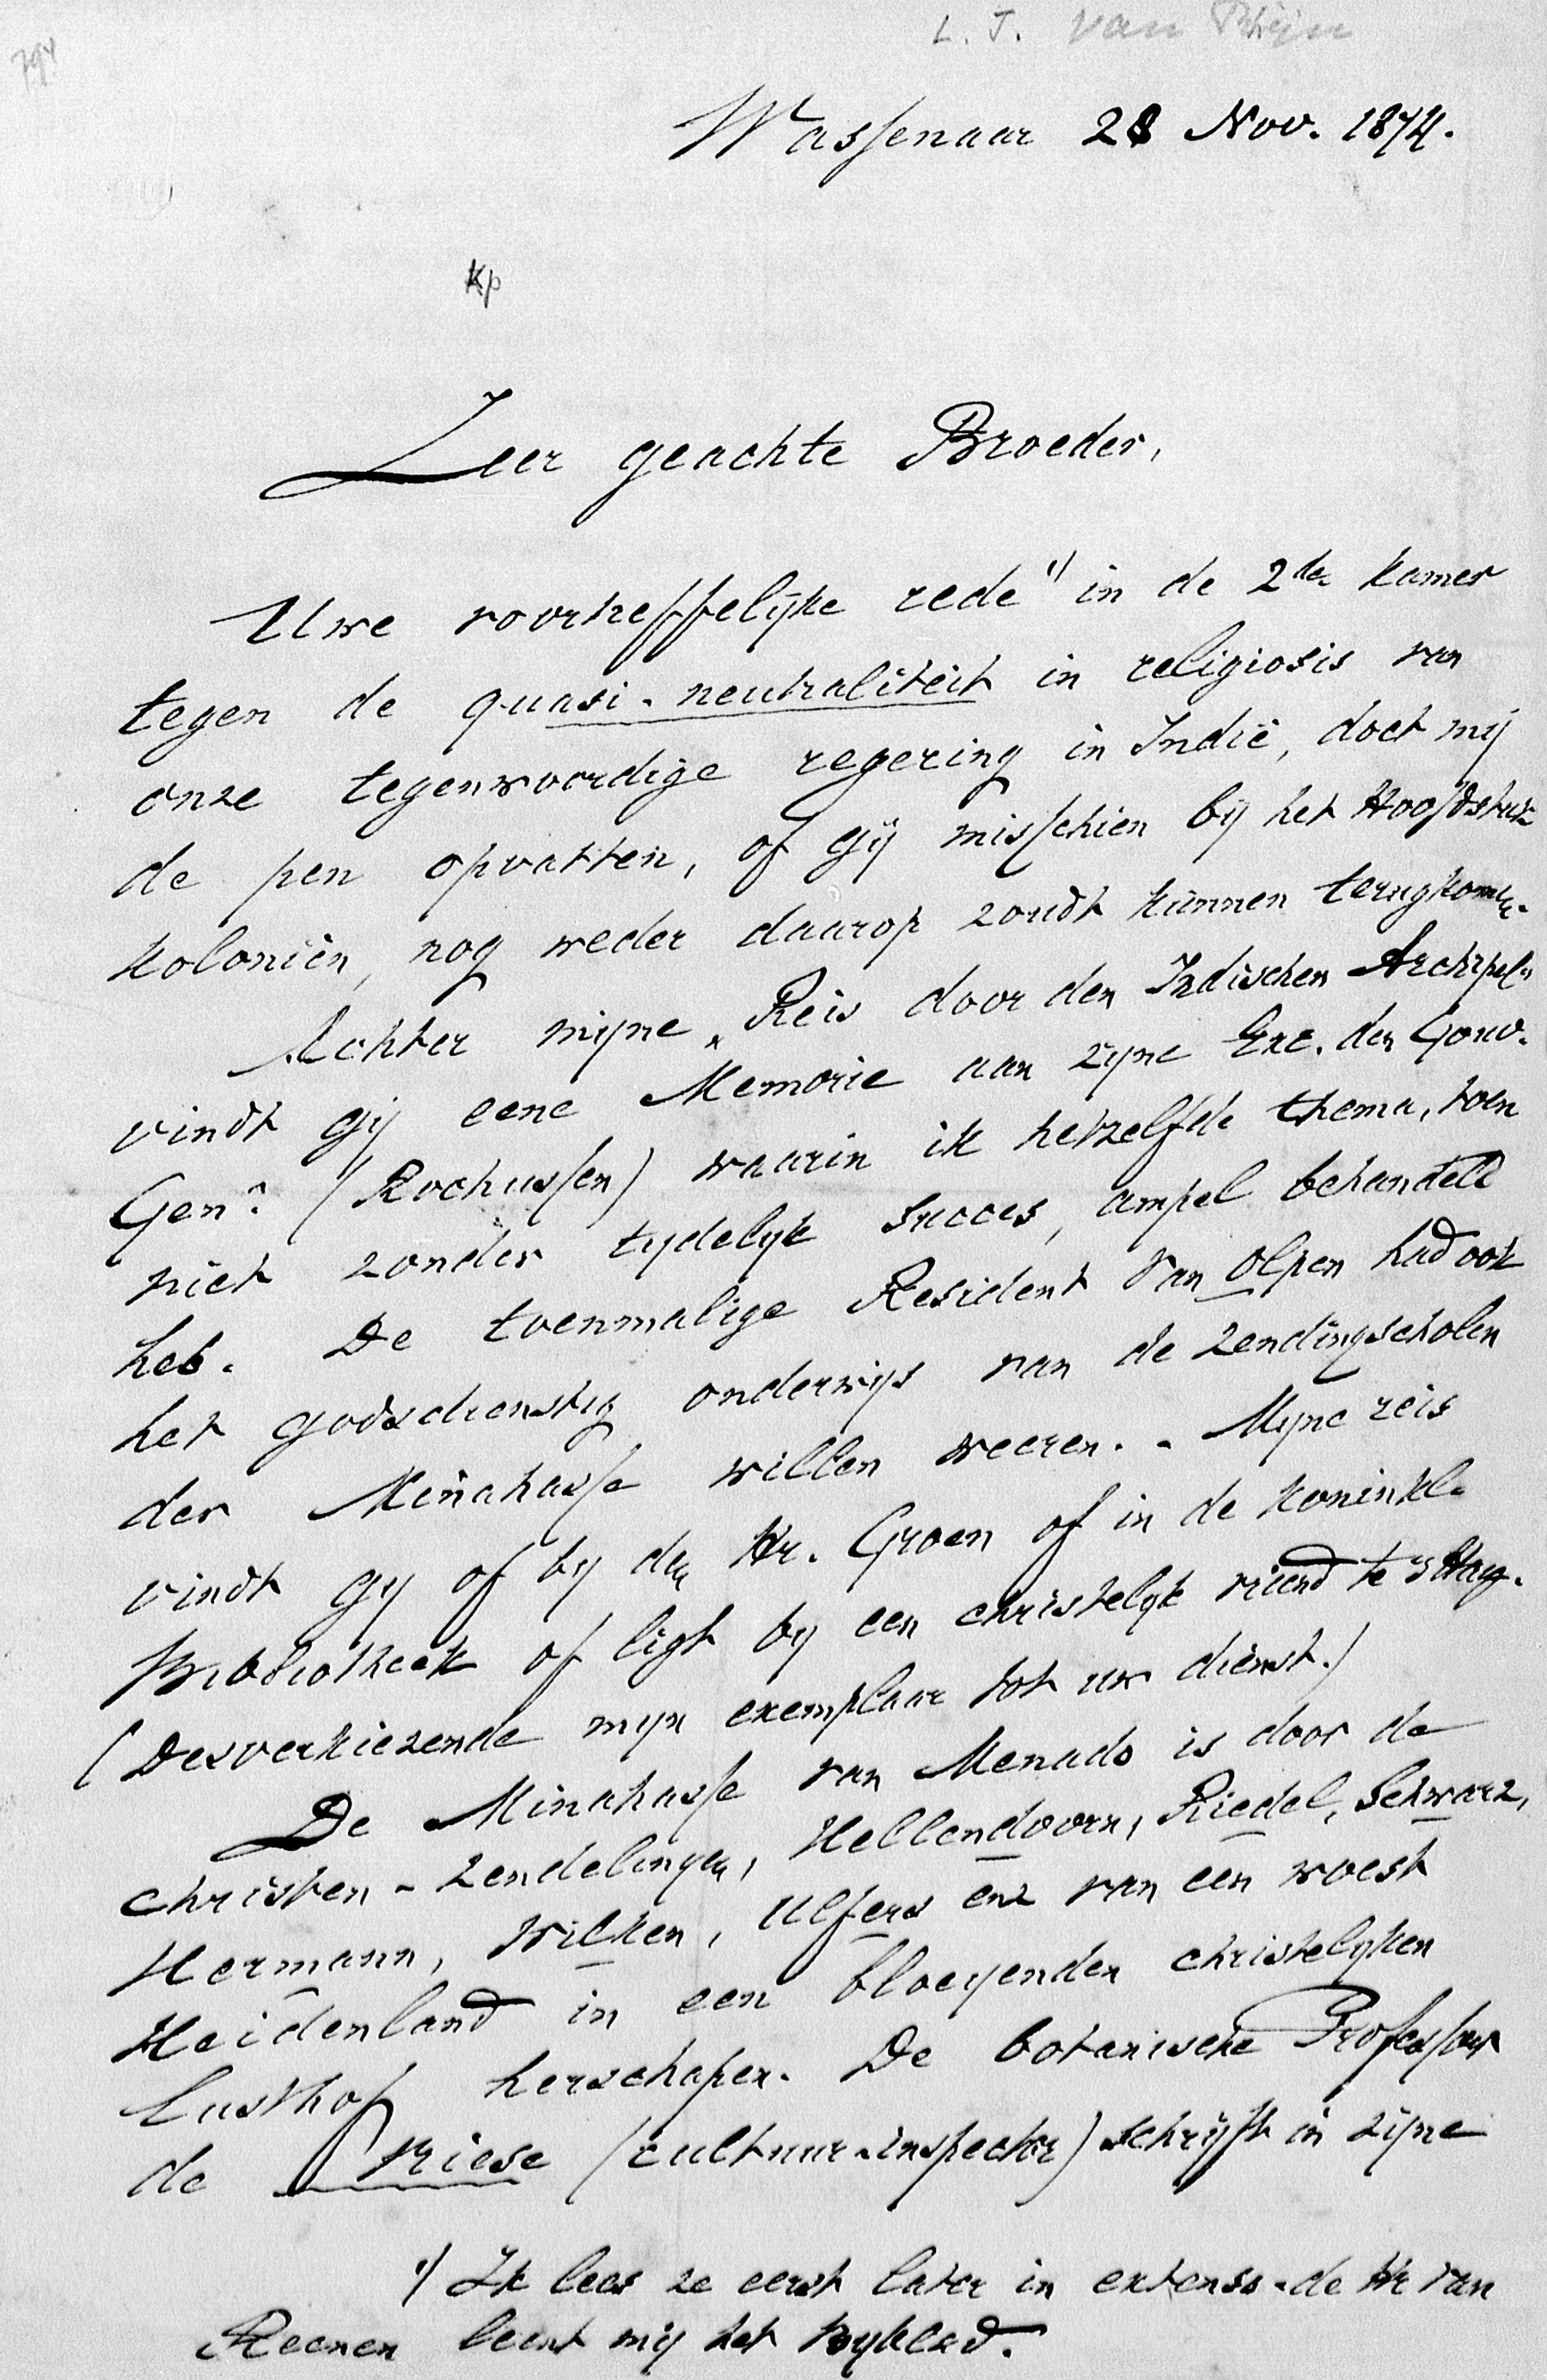 L. J. van Rhijn
794
Wassenaar 28 Nov. 1874.
Kp
Zeer geachte Broeder,
Uwe voortreffelijke rede 1) in de 2de Kamer
tegen de quasi-neutraliteit in religiosis van
onze tegenwoordige regering in Indië, doet mij
de pen opvatten, of gij misschien bij het Hoofdstuk
Koloniën, nog weder daarop zoudt kunnen terugkomen.
Achter mijne „Reis door den Indischen Archipel"
vindt gij eene Memorie aan zijne Exc. den Gouv.
Genl. (Rochussen) waarin ik hetzelfde thema, toen
niet zonder tydelyk succes, ampel behandeld
heb. De toenmalige Resident van Olpen had ook
het godsdienstig onderwijs van de zendingscholen
der Minahasse willen weeren. - Mijne reis
vindt gy of by den Hr. Groen of in de Koninkl.
Bibliotheek of ligt by een christelyk vriend te 's Hage.
(Desverkiezende myn exemplaar tot uw dienst.)
De Minahasse van Menado is door de
Christen-zendelingen, Hellendoorn, Riedel, Schwarz,
Hermann, Wilken, Ulfers enz van een woest
Heidenland in een bloeyenden christelyken
Lusthof herschapen. De botanische Professor
de Vriese (cultuur-inspector) schrijft in zijne
1) Ik lees ze eerst later in extenso - de Hr van
Reenen leent mij het Byblad.